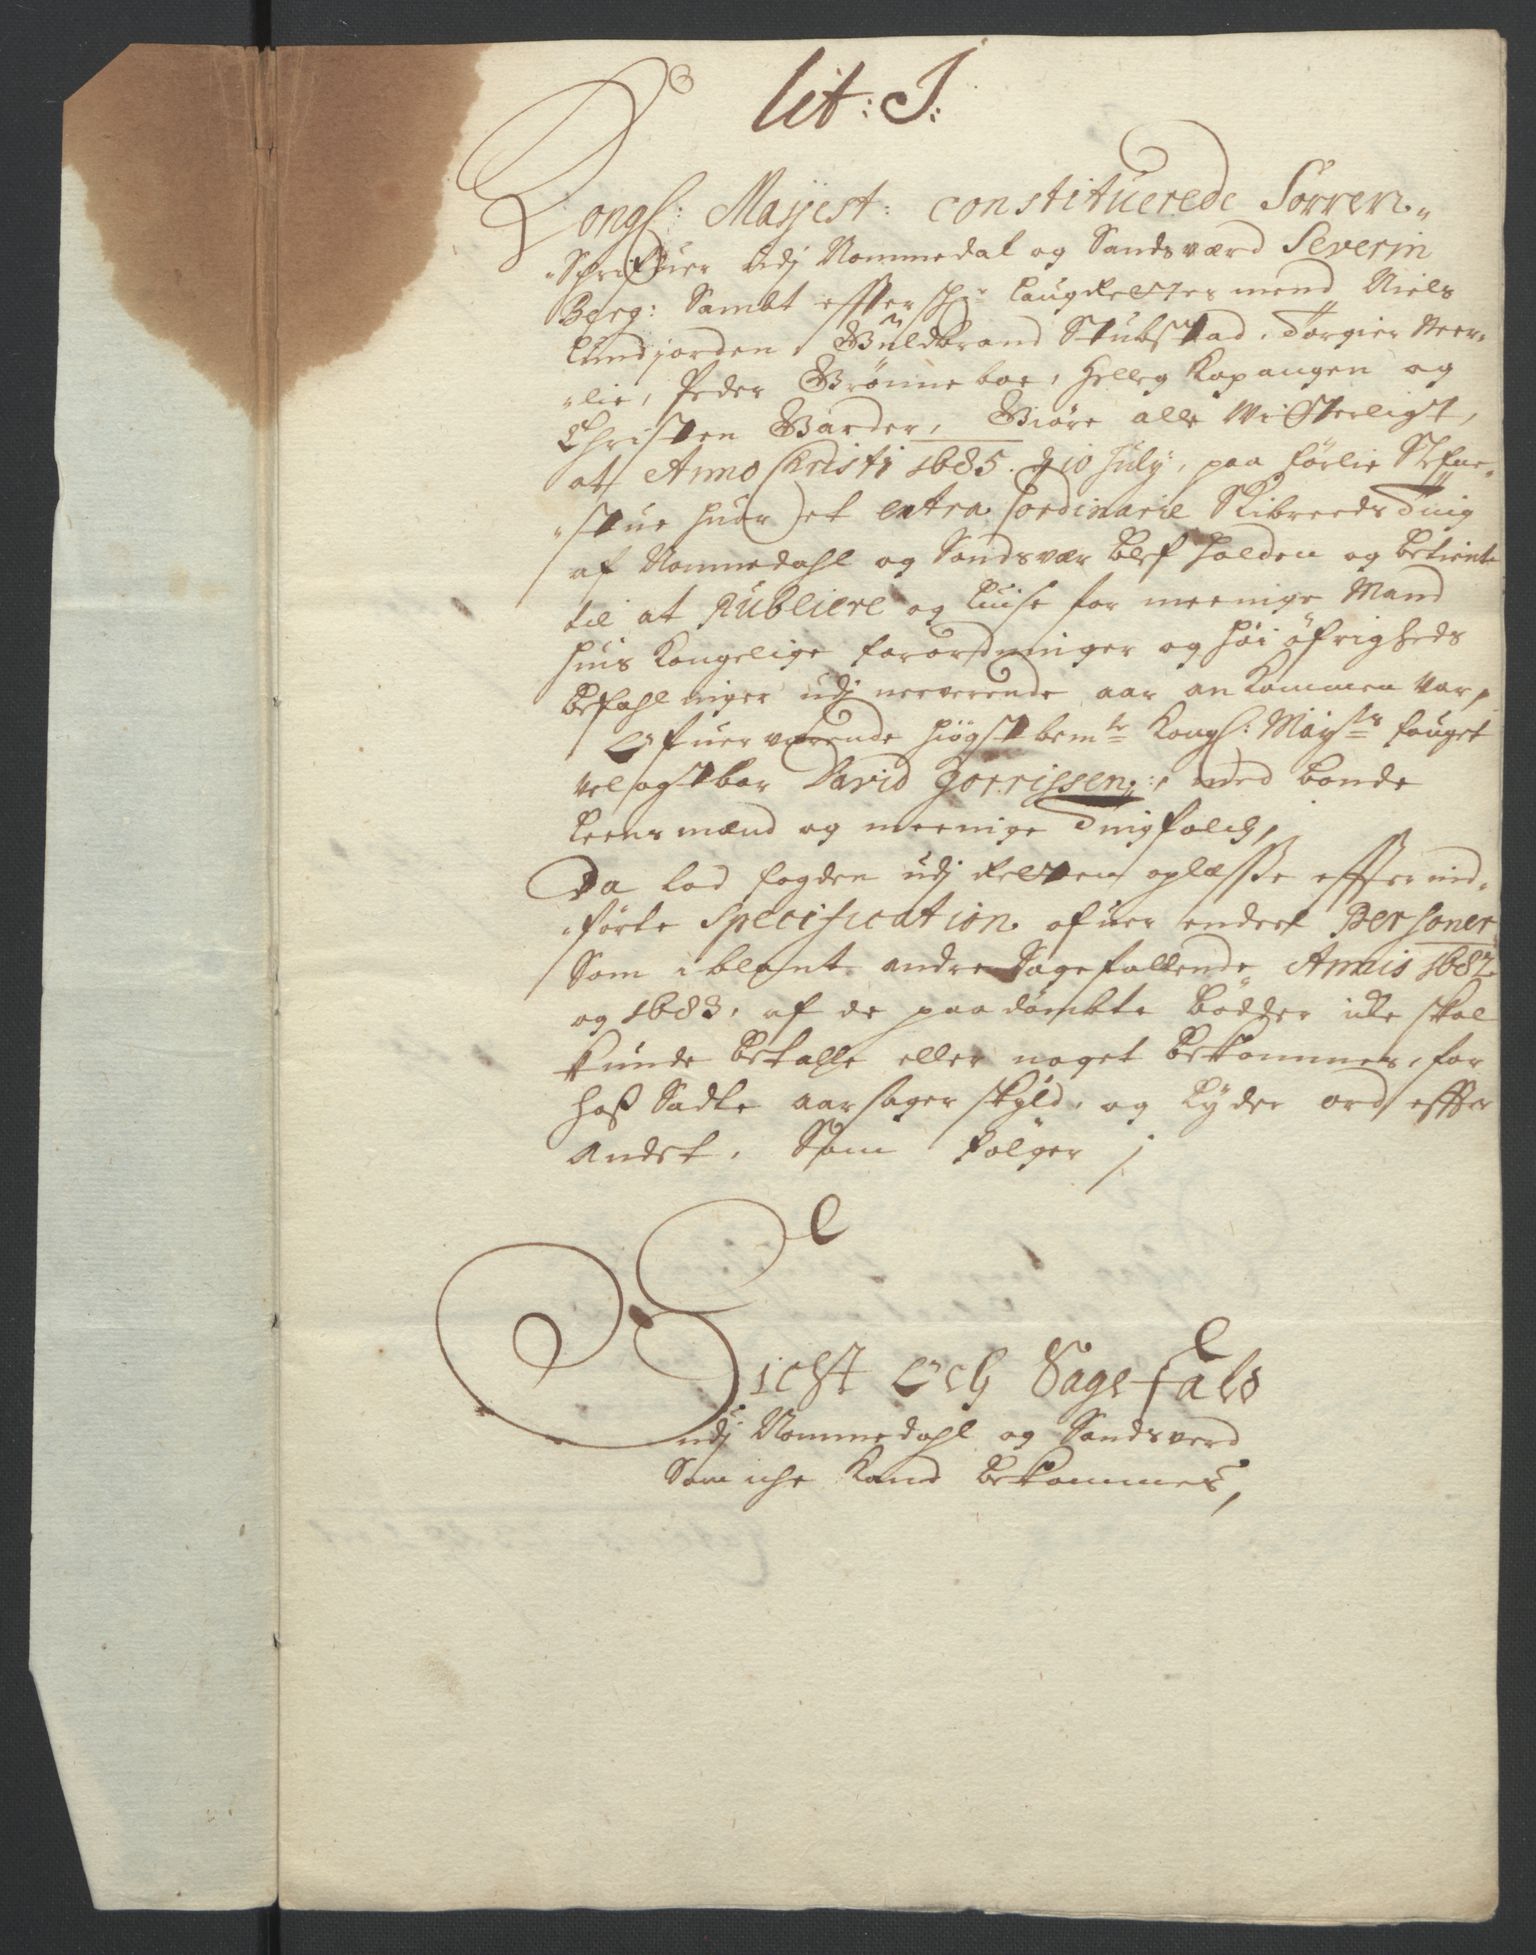 lit: J:
Kongl: Mayest: constituerede Sorren-
Schrifuer udj Nommedal og Sandsværd Severin
Berg: Sambt effterschr Laugrettes mend Niels
Lundjorden, Guldbrand Stubstad, Torgier Meer-
lie, Peder Grønneboe, Helleg Kopangen og
Christen Garder, Giøre alle Witterligt,
at Anno Christi 1685. d 10 July, paa førlie Stefne-
stue huor et extra ordinarie Skibreeds Ting
af Nommedahl og Sandsvær blef holden og betient
til at Publicere og Liuse for meenige Mand
huis Kongelige forordninger og høi øfrigheds
befahlninger udj nerverende aar ankommen var,
Ofuerværende høigstbemte Kongl: Mayts fouget
velagtbar David Gorrissen, med bonde
Leensmænd og meenige Tingfolch,
Da lod fogden udj retten oplæsse effterind-
førte Specification ofuer endeel Personer
Som iblant andre Sagefallende Annis 1682
og 1683, af de paadømbte bødder icke skal
kunde betalle eller noget bekommes, for
hoß Sadte aarsager skyld, og lyder ord effter
andet, Som følger
Sicht Och Sagefald
udj Nommedahl og Sandsverd
Som iche kand bekommes,